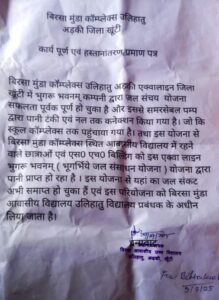 बिरसा मुंडा कॉम्प्लेक्स उलिहातु
अड़की जिला खूँटी
कार्य पूर्ण एवं हस्तान्तरण प्रमाण पत्र
बिरसा मुंडा कॉम्प्लेक्स उलिहातु अड़की एक्वालाइन जिला
खूँटी में भुगरू भवनम् कम्पनी द्वारा जल संचय योजना
सफलता पूर्वक पूर्ण हो चुका है और इससे समरसेबल पम्प
द्वारा पानी टंकी एवं नल तक कनेक्शन किया गया है। जो कि
स्कूल कॉम्पलेक्स तक पहुंचाया गया है। तथा इस योजना से
बिरसा मुंडा कॉम्प्लेक्स स्थित आवासीय विद्यालय में रहने
वाले छात्राओं एवं एस0 एच0 बिल्डिंग को इस एक्वा लाइन
भुगरू भवनम् ( भूगर्भिय जल संसाधन योजना ) योजना द्वारा
पानी प्राप्त हो रहा है । इस योजना से यहां का जल संकट
अभी समाप्त हो चुका हैं एवं इस परियोजना को बिरसा मुंडा
आवासीय विद्यालय उलिहातु विद्यालय प्रबंधक के अधीन
लिया जाता है।